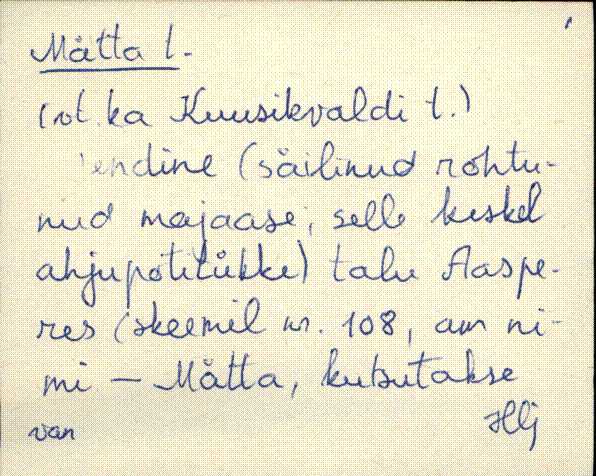 Mätta t.
(vt. ka Kuusikvaldi t.)
endine (säilinud rohtu-
nud majaase, selle keskel
ahjupotitükke) talu Aaspe-
res (skeemil nr. 108, am ni-
mi – Mätta, kutsutakse
van Hlj